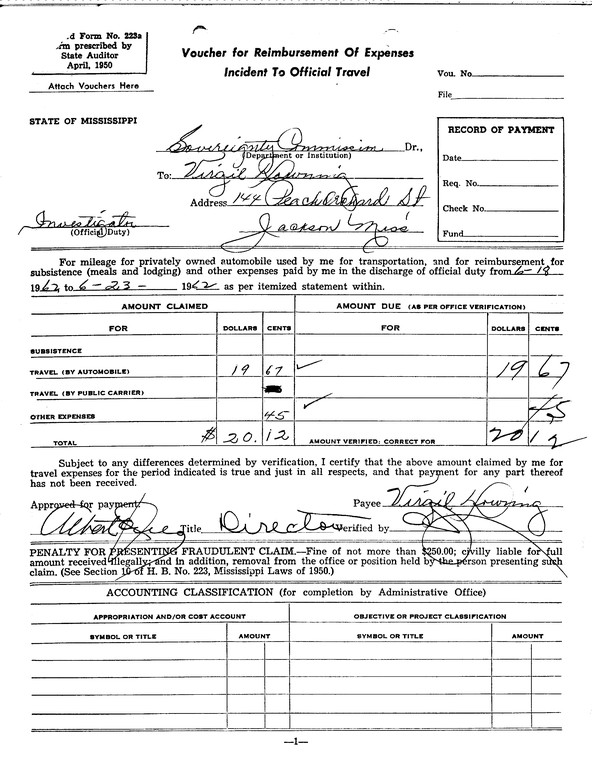 d Form No. 223a
rm prescribed by
State Auditor
April, 1950
Attach Vouchers Here
Voucher for Reimbursement Of Expenses
Incident To Official Travel
Vou. No.
File
STATE OF MISSISSIPPI
RECORD OF PAYMENT
Date
Req. No.
Check No.
Fund
Sovereignty Commission Dr.,
(Department or Institution)
To: Virgil Downing
Address 144 Peach Orchard St
Jackson Miss
Investigator
(Official Duty)
For mileage for privately owned automobile used by me for transportation, and for reimbursement for
subsistence (meals and lodging) and other expenses paid by me in the discharge of official duty from 6-18
1962, to 6-23- 1962 as per itemized statement within.
AMOUNT CLAIMED AMOUNT DUE (AS PER OFFICE VERIFICATION)
FOR DOLLARS CENTS FOR DOLLARS CENTS
SUBSISTENCE
TRAVEL (BY AUTOMOBILE) 19 67 19 67
TRAVEL (BY PUBLIC CARRIER)
OTHER EXPENSES 45 45
TOTAL $ 20. 12 AMOUNT VERIFIED: CORRECT FOR 20 12
Subject to any differences determined by verification, I certify that the above amount claimed by me for
travel expenses for the period indicated is true and just in all respects, and that payment for any part thereof
has not been received.
Approved for payment Payee Virgil Downing
Albert Jones Title Director Verified by
PENALTY FOR PRESENTING FRAUDULENT CLAIM.—Fine of not more than $250.00; civilly liable for full
amount received illegally; and in addition, removal from the office or position held by the person presenting such
claim. (See Section 10 of H. B. No. 223, Mississippi Laws of 1950.)
ACCOUNTING CLASSIFICATION (for completion by Administrative Office)
APPROPRIATION AND/OR COST ACCOUNT OBJECTIVE OR PROJECT CLASSIFICATION
SYMBOL OR TITLE AMOUNT SYMBOL OR TITLE AMOUNT
—1—